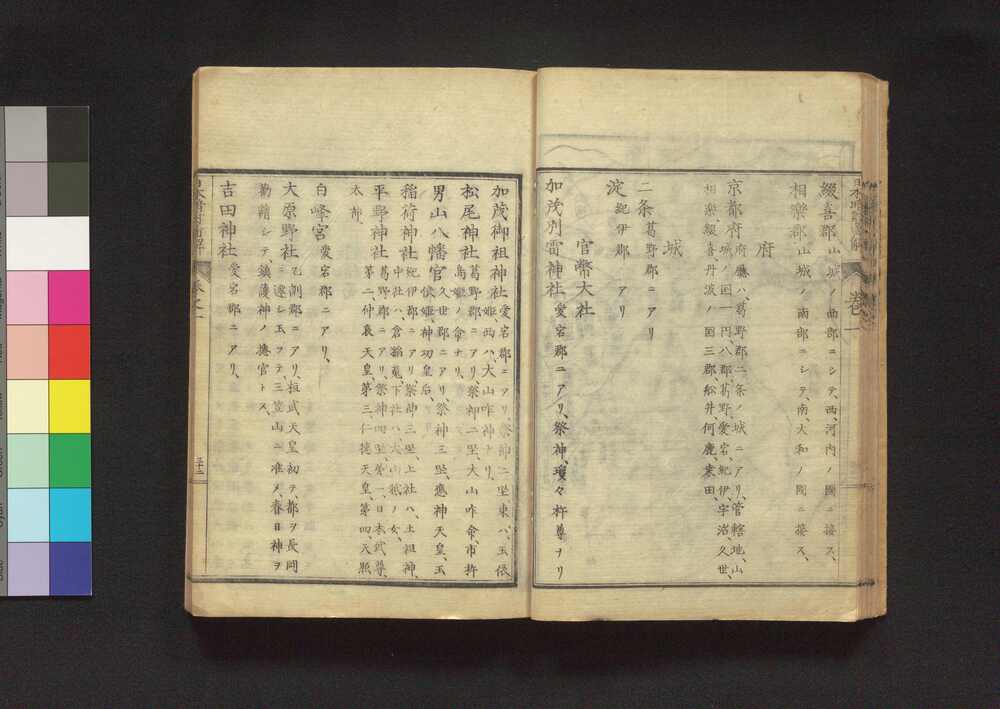 綴喜郡 山城ノ西部ニシテ、西、河内ノ國ニ接ス、
相樂郡 山城ノ南部ニシテ、南、大和ノ國ニ接ス、
府
京都府 府廳ハ、葛野郡二条ノ城ニアリ、管轄地、山
城ノ國一円、八郡葛野、愛宕、紀伊、宇治、久世、
相樂、綴喜、丹波ノ國三郡舩井、何鹿、桒田、
城
二条 葛野郡ニアリ
淀 紀伊郡ニアリ
官幣大社
加茂別雷神社 愛宕郡ニアリ、祭神、瓊々杵尊ナリ
加茂御祖神社 愛宕郡ニアリ、祭神二坐、東ハ、玉依
姫、西ハ、大山咋神ナリ、
松尾神社 葛野郡ニアリ、祭神二坐、大山咋命、市杵
島姫ノ命ナリ、
男山八幡宮 久世郡ニアリ、祭神三坐、應神天皇、玉
依姫、神功皇后、
稲荷神社 紀伊郡ニアリ、祭神三坐、上社ハ、土祖神、
中社ハ、倉稲魂、下社ハ、大山祇ノ女、
平野神社 葛野郡ニアリ、祭神四坐、第一、日本武尊、
第二、仲哀天皇、第三、仁徳天皇、第四、天照
太神、
白峰宮 愛宕郡ニアリ、
大原野社 乙訓郡ニアリ、桓武天皇初テ、都ヲ長岡
ニ遷シ玉フテ、三笠山ニ准メ、春日神ヲ
勸請シテ、鎮護神ノ
吉田神社 愛宕郡ニアリ、
卷一
三十二